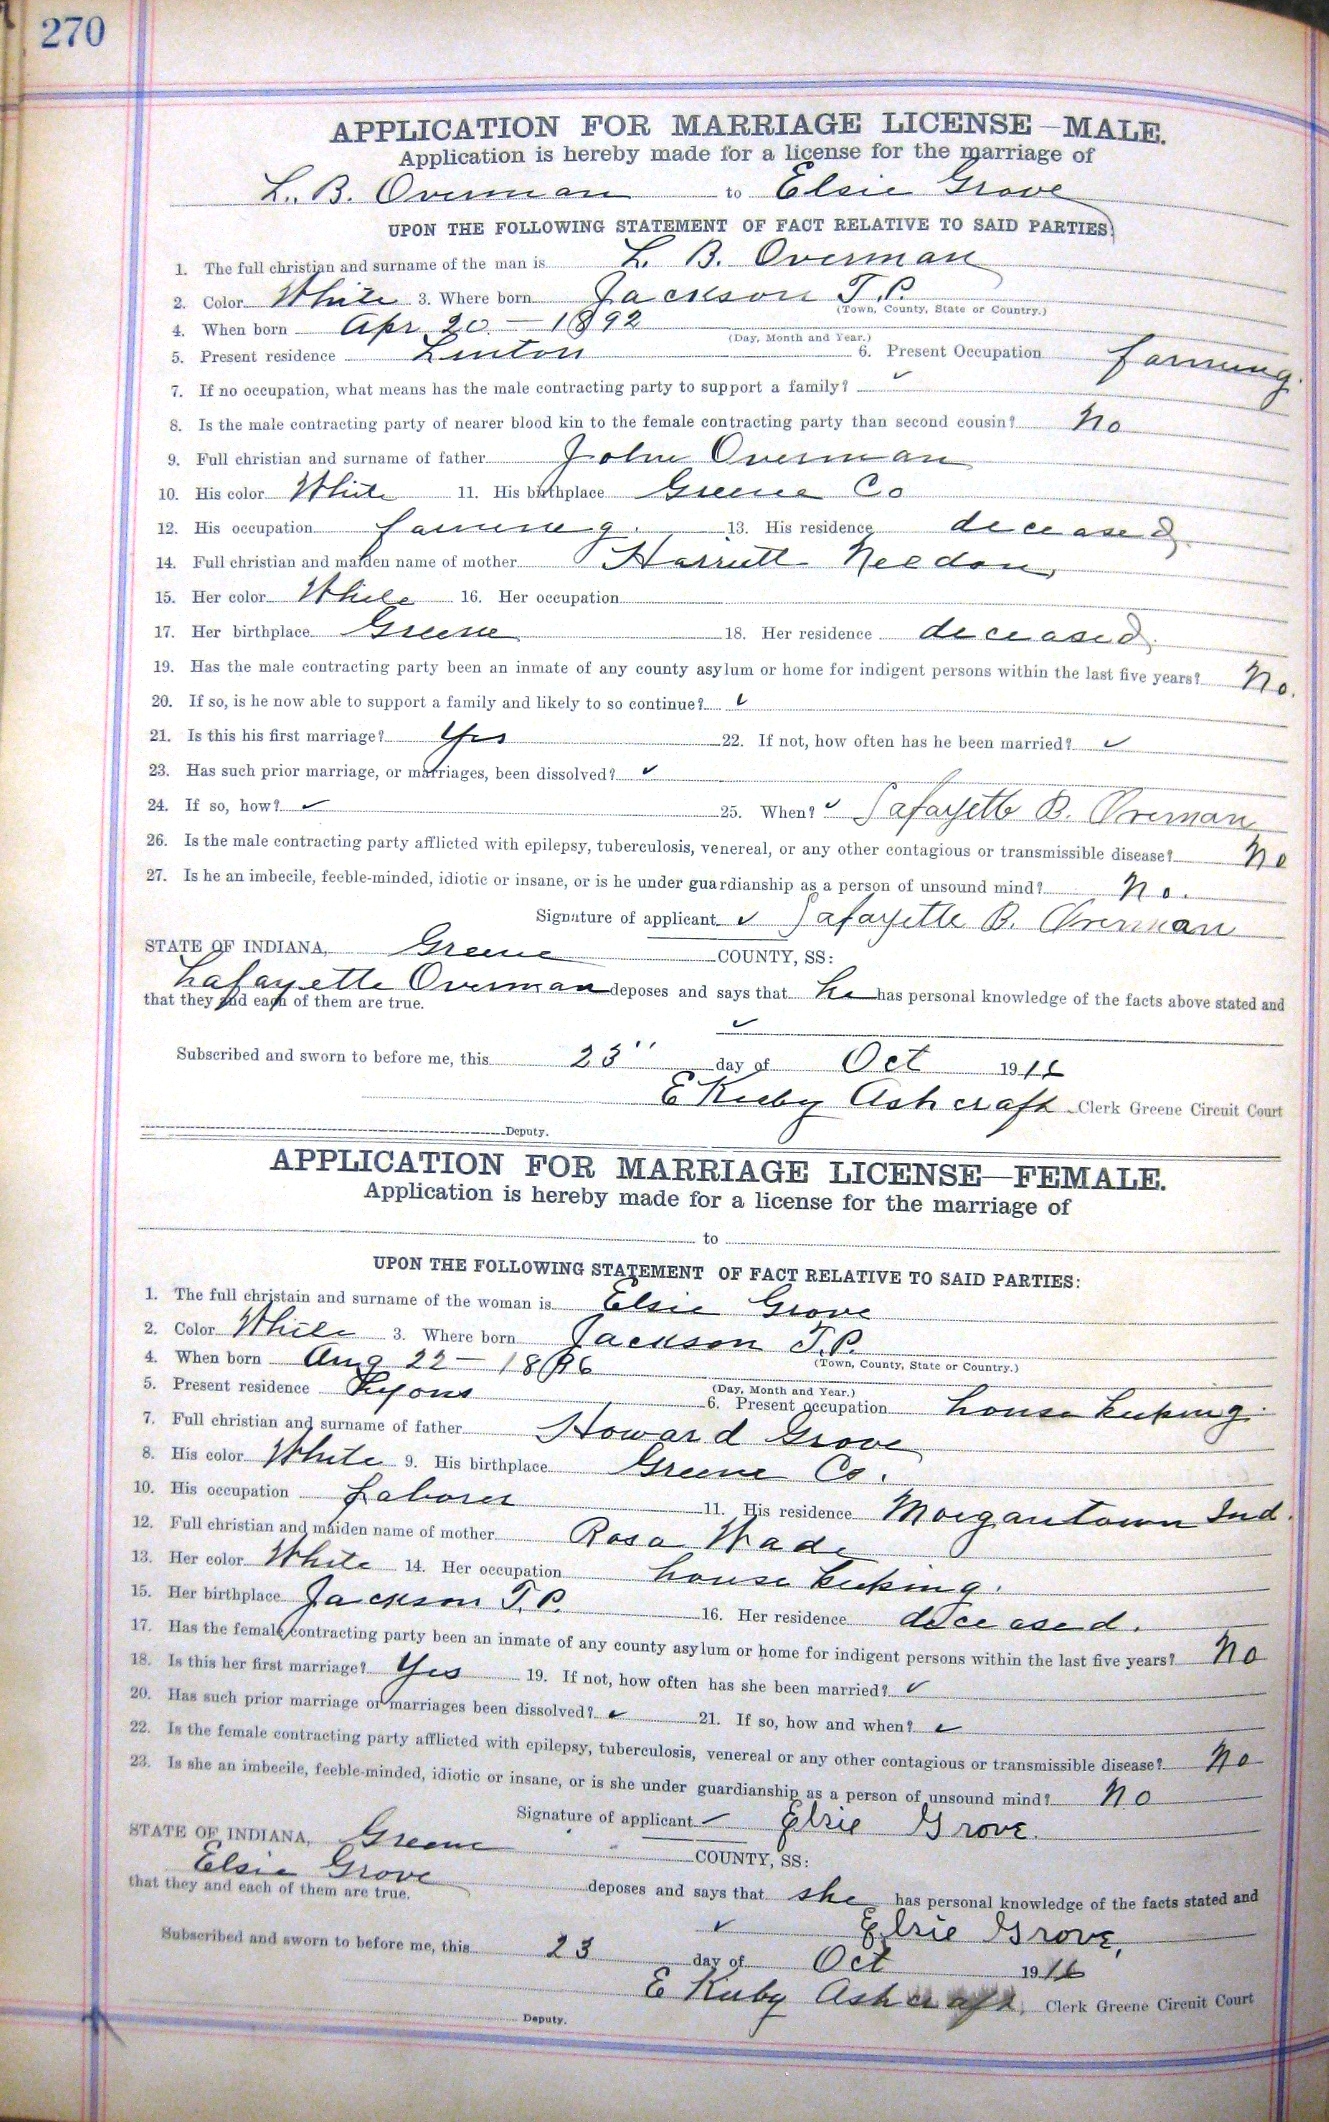 270
APPLICATION FOR MARRIAGE LICENSE—MALE.
Application is hereby made for a license for the marriage of
L. B. Overman to Elsie Grove
UPON THE FOLLOWING STATEMENT OF FACT RELATIVE TO SAID PARTIES:
1. The full christian and surname of the man is L. B. Overman
2. Color White 3. Where born Jackson T.P.
(Town, County, State or Country.)
4. When born Apr 20 — 1892
(Day, Month and Year.)
5. Present residence Linton 6. Present Occupation farming.
7. If no occupation, what means has the male contracting party to support a family? ✓
8. Is the male contracting party of nearer blood kin to the female contracting party than second cousin? No
9. Full christian and surname of father John Overman
10. His color White 11. His birthplace Greene Co
12. His occupation farming. 13. His residence deceased,
14. Full christian and maiden name of mother Harriett Needom,
15. Her color White 16. Her occupation
17. Her birthplace Greene 18. Her residence deceased,
19. Has the male contracting party been an inmate of any county asylum or home for indigent persons within the last five years? No.
20. If so, is he now able to support a family and likely to so continue? ✓
21. Is this his first marriage? Yes 22. If not, how often has he been married? ✓
23. Has such prior marriage, or marriages, been dissolved? ✓
24. If so, how? ✓ 25. When? ✓ Lafayette B. Overman
26. Is the male contracting party afflicted with epilepsy, tuberculosis, venereal, or any other contagious or transmissible disease? No
27. Is he an imbecile, feeble-minded, idiotic or insane, or is he under guardianship as a person of unsound mind? No.
Signature of applicant ✓ Lafayette B. Overman
STATE OF INDIANA, Greene COUNTY, SS:
Lafayette Overman deposes and says that he has personal knowledge of the facts above stated and
that they and each of them are true.
✓
Subscribed and sworn to before me, this 23" day of Oct 1916
E Kirby Ashcraft Clerk Greene Circuit Court
Deputy.
APPLICATION FOR MARRIAGE LICENSE—FEMALE.
Application is hereby made for a license for the marriage of
to
UPON THE FOLLOWING STATEMENT OF FACT RELATIVE TO SAID PARTIES:
1. The full christain and surname of the woman is Elsie Grove
2. Color White 3. Where born Jackson T.P.
(Town, County, State or Country.)
4. When born Aug 22 — 1896
(Day, Month and Year.)
5. Present residence Lyons 6. Present occupation house keeping.
7. Full christian and surname of father Howard Grove
8. His color White 9. His birthplace Greene Co.
10. His occupation Laborer 11. His residence Morgantown Ind.
12. Full christian and maiden name of mother Rosa Wade
13. Her color White 14. Her occupation house keeping.
15. Her birthplace Jackson T.P. 16. Her residence deceased.
17. Has the female contracting party been an inmate of any county asylum or home for indigent persons within the last five years? No
18. Is this her first marriage? Yes 19. If not, how often has she been married? ✓
20. Has such prior marriage or marriages been dissolved? ✓ 21. If so, how and when? ✓
22. Is the female contracting party afflicted with epilepsy, tuberculosis, venereal or any other contagious or transmissible disease? No
23. Is she an imbecile, feeble-minded, idiotic or insane, or is she under guardianship as a person of unsound mind? NO
Signature of applicant ✓ Elsie Grove.
STATE OF INDIANA, Greene COUNTY, SS:
Elsie Grove deposes and says that she has personal knowledge of the facts stated and
that they and each of them are true.
✓ Elsie Grove,
Subscribed and sworn to before me, this 23 day of Oct 1916
E Kirby Ashcraft, Clerk Greene Circuit Court
Deputy.